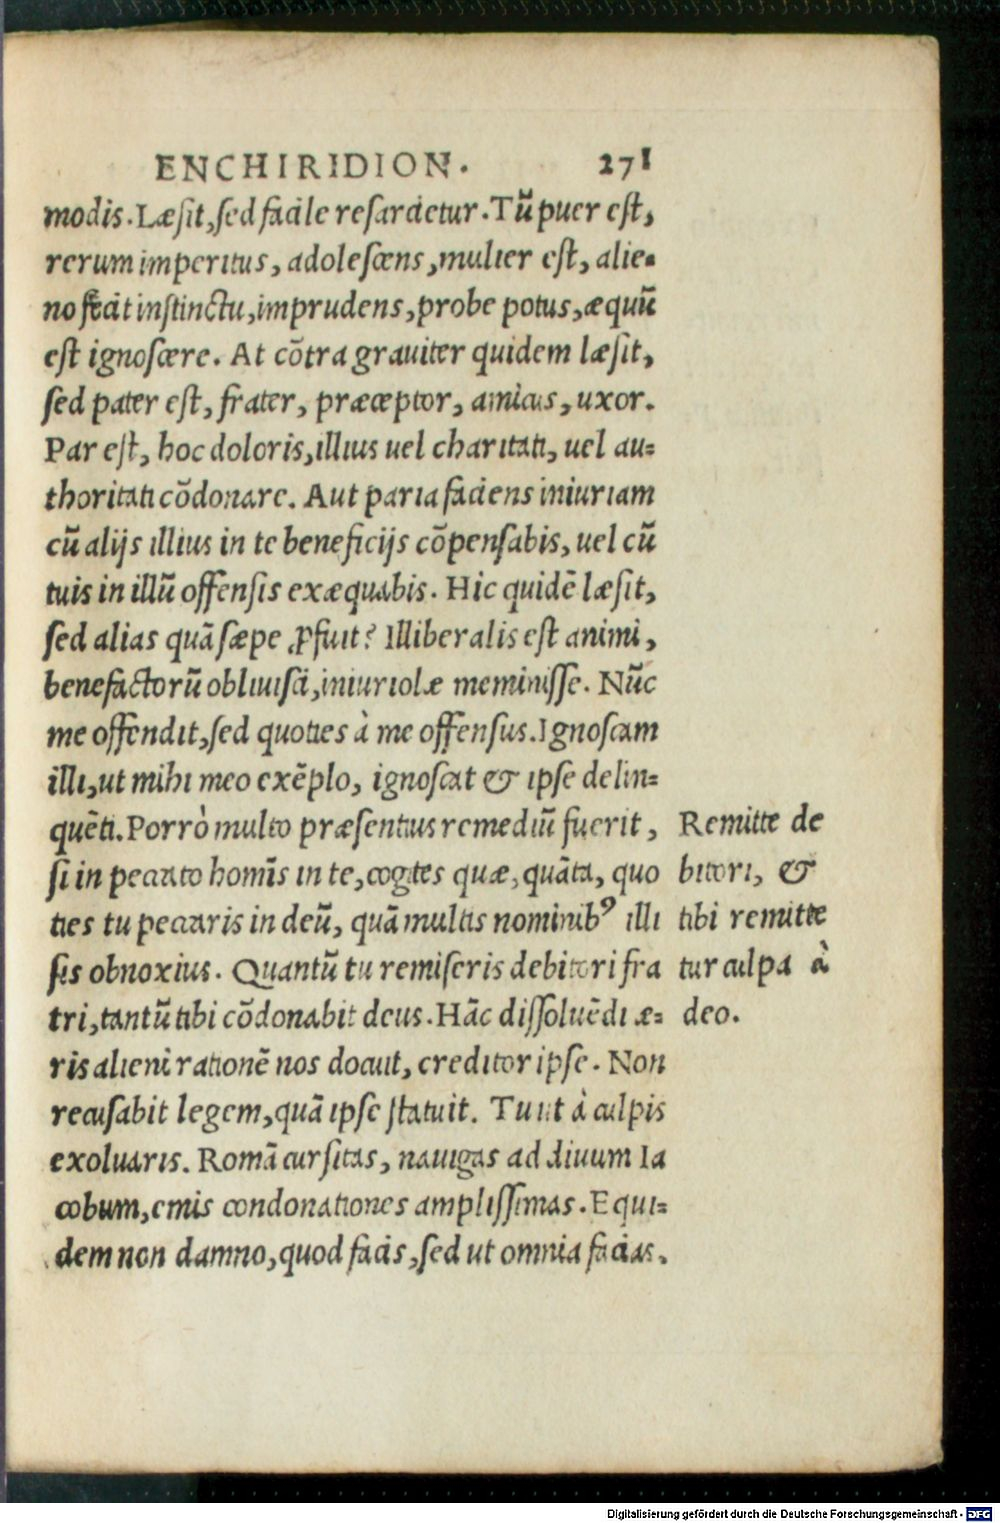 ENCHIRIDION. 271
modis. Læsit, sed facile resarcietur. Tũ puer est,
rerum imperitus, adolescens, mulier est, alie-
no fecit instinctu, imprudens, probe potus, æquũ
est ignoscere. At cõtra grauiter quidem læsit,
sed pater est, frater, præceptor, amicus, uxor.
Par est, hoc doloris, illius uel charitati, uel au=
thoritati cõdonare. Aut paria faciens iniuriam
cũ alijs illius in te beneficijs cõpensabis, uel cũ
tuis in illũ offensis exæquabis. Hic quidẽ læsit,
sed alias quã sæpe ꝓfuit? Illiberalis est animi,
benefactorũ obliuisci, iniuriolæ meminisse. Nũc
me offendit, sed quoties à me offensus. Ignoscam
illi, ut mihi meo exẽplo, ignoscat & ipse delin=
quẽti. Porrò multo præsentius remediũ fuerit,
si in peccato homĩs in te, cogites quæ, quãta, quo
ties tu peccaris in deũ, quã multis nominibꝰ illi
sis obnoxius. Quantũ tu remiseris debitori fra
tri, tantũ tibi cõdonabit deus. Hãc dissoluẽdi æ=
ris alieni rationẽ nos docuit, creditor ipse. Non
recusabit legem, quã ipse statuit. Tu ut à culpis
exoluaris. Romã cursitas, nauigas ad diuum Ia
cobum, emis condonationes amplissimas. Equi=
dem non damno, quod facis, sed ut omnia facias,
Remitte de
bitori, &
tibi remitte
tur culpa à
deo.
Digitalisierung gefördert durch die Deutsche Forschungsgemeinschaft - DFG